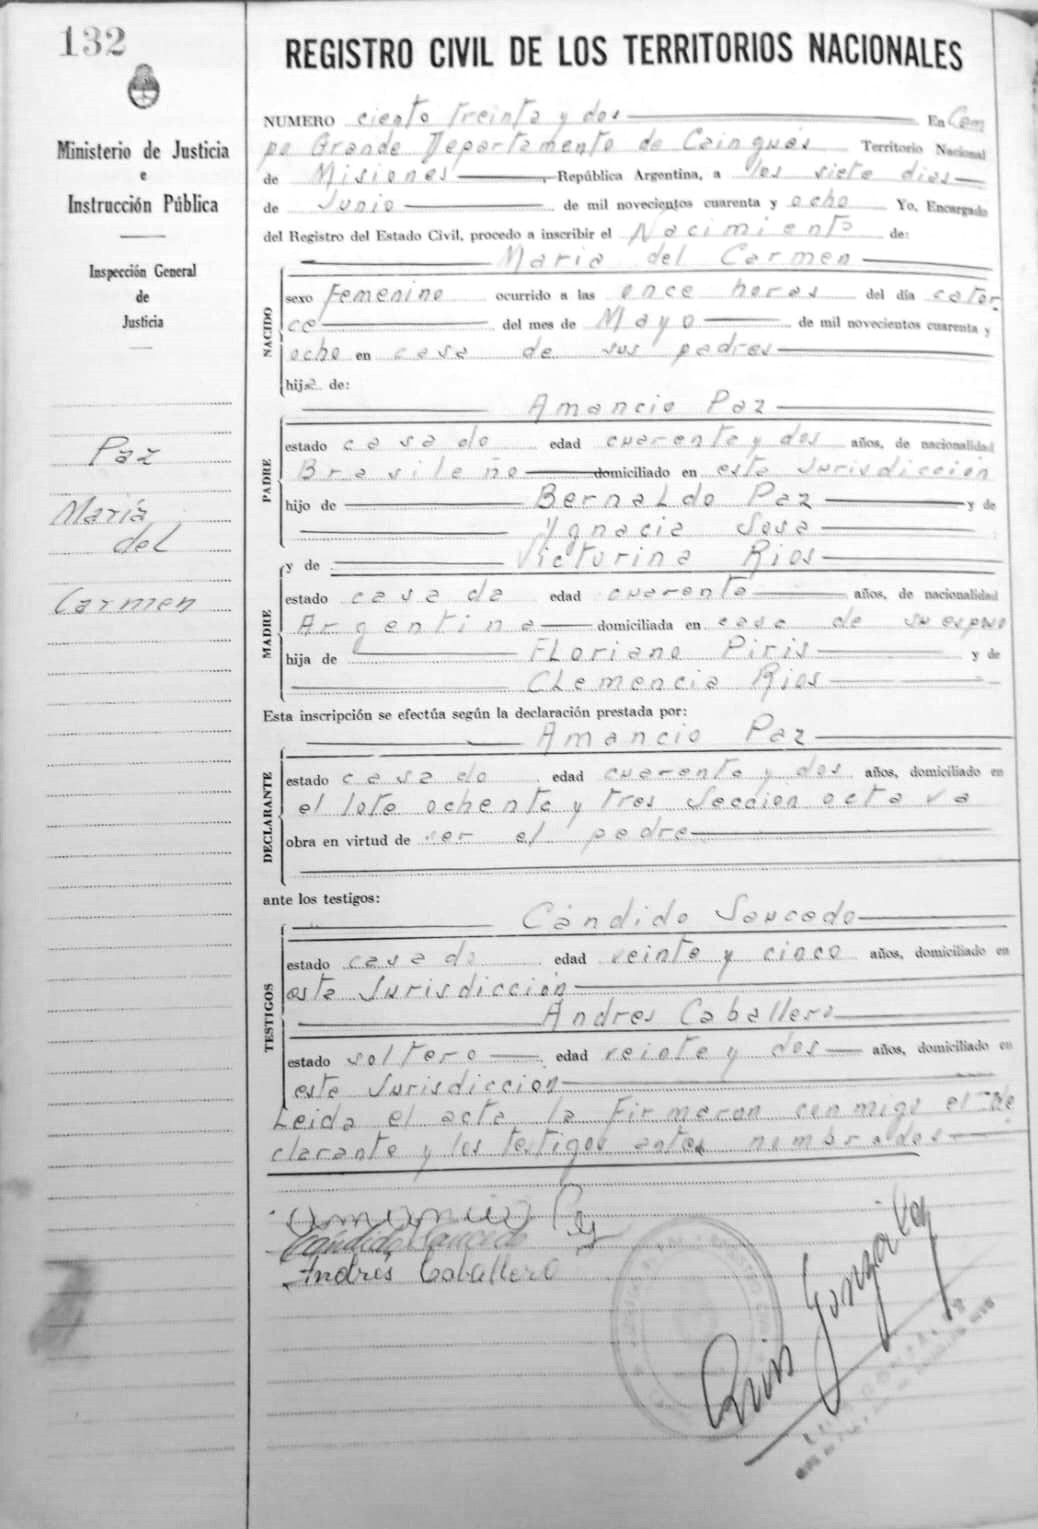 132
REGISTRO CIVIL DE LOS TERRITORIOS NACIONALES
Ministerio de Justicia
e
Instrucción Pública
Inspección General
de
Justicia
Paz
María
del
Carmen
NUMERO ciento treinta y dos En Cam
po Grande Departamento de Cainguás Territorio Nacional
de Misiones, República Argentina, a los siete dias
de Junio de mil novecientos cuarenta y ocho Yo, Encargado
del Registro del Estado Civil, procedo a inscribir el Nacimiento de:
NACIDO
Maria del Carmen
sexo Femenino ocurrido a las once horas del día cator
ce del mes de Mayo de mil novecientos cuarenta y
ocho en casa de sus padres
hija de:
PADRE
Amancio Paz
estado casado edad cuarenta y dos años, de nacionalidad
Brasileño domiciliado en esta Jurisdiccion
hijo de Bernaldo Paz y de
Ygnacia Sosa
MADRE
y de Victurina Rios
estado casada edad cuarenta años, de nacionalidad
Argentina domiciliada en casa de su esposo
hija de Floriano Piris y de
Clemencia Rios
Esta inscripción se efectúa según la declaración prestada por:
DECLARANTE
Amancio Paz
estado casado edad cuarenta y dos años, domiciliado en
el lote ochenta y tres Sección octava
obra en virtud de ser el padre
ante los testigos:
TESTIGOS
Cándido Saucedo
estado casado edad veinte y cinco años, domiciliado en
esta Jurisdicción
Andres Caballero
estado soltero edad veinte y dos años, domiciliado en
esta Jurisdiccion
Leida el acta la firmaron conmigo el de
clarante y los testigos antes nombrados
Amancio Paz
Cándido Saucedo
Andrés Caballero
Luis González